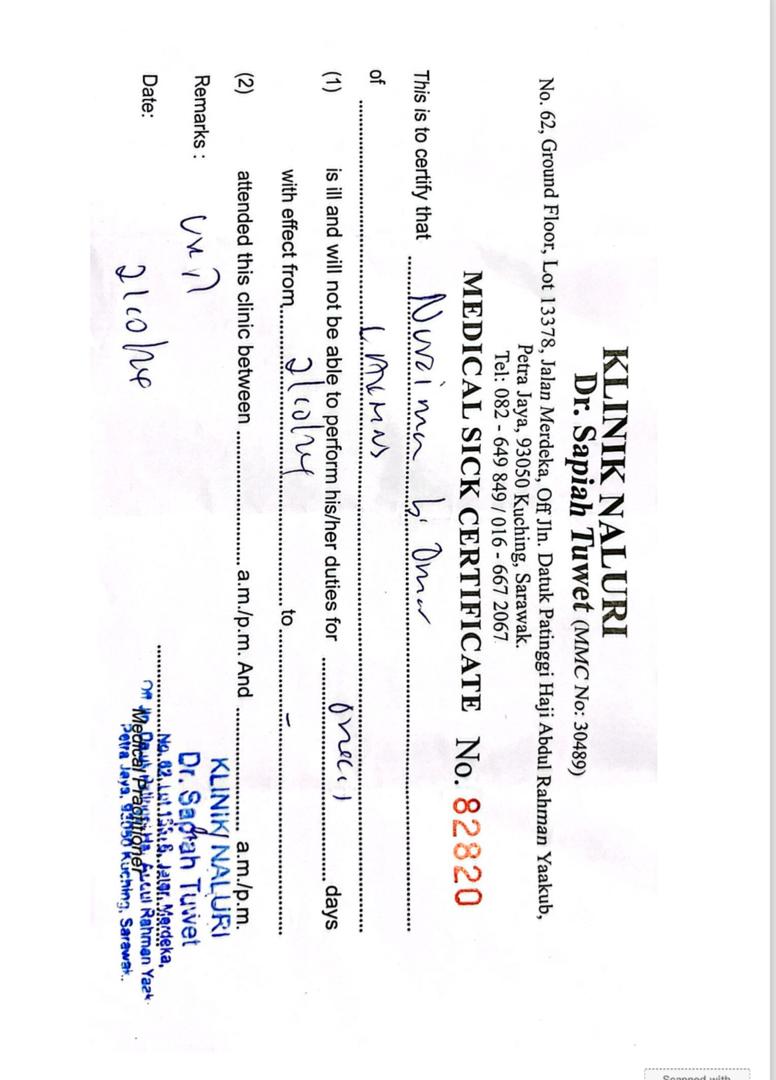 KLINIK NALURI
Dr. Sapiah Tuwet (MMC No: 30489)
No. 62, Ground Floor, Lot 13378, Jalan Merdeka, Off Jln. Datuk Patinggi Haji Abdul Rahman Yaakub,
Petra Jaya, 93050 Kuching, Sarawak.
Tel: 082 - 649 849 / 016 - 667 2067
MEDICAL SICK CERTIFICATE No. 82820
This is to certify that Nuraiman bi Omar
of
(1) is ill and will not be able to perform his/her duties for one(1) days
with effect from to -
(2) attended this clinic between a.m./p.m. And a.m./p.m.
Remarks :
Date:
KLINIK NALURI
Dr. Sapiah Tuwet
No. 62, Lot Jalan Merdeka,
Medical Practitioner
Petra Jaya, 93050 Kuching, Sarawak.
Scanned with